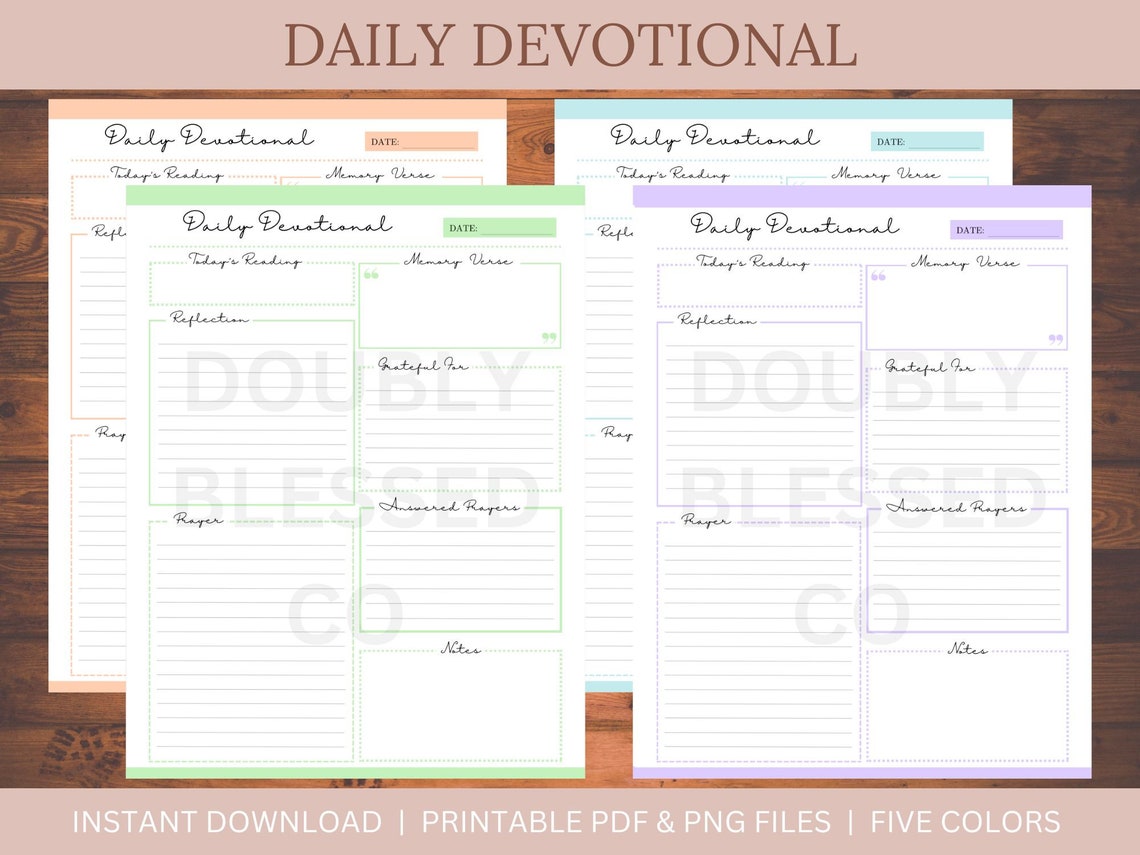 DAILY DEVOTIONAL
Daily Devotional
DATE:
Today's Reading
Memory Verse
Daily Devotional
DATE:
Today's Reading
Memory Verse
Daily Devotional
DATE:
Today's Reading
Memory Verse
“
”
Reflection
Grateful For
Answered Prayers
Prayer
Notes
DOUBLY
BLESSED
CO
Daily Devotional
DATE:
Today's Reading
Memory Verse
“
”
Reflection
Grateful For
Answered Prayers
Prayer
Notes
DOUBLY
BLESSED
CO
INSTANT DOWNLOAD | PRINTABLE PDF & PNG FILES | FIVE COLORS